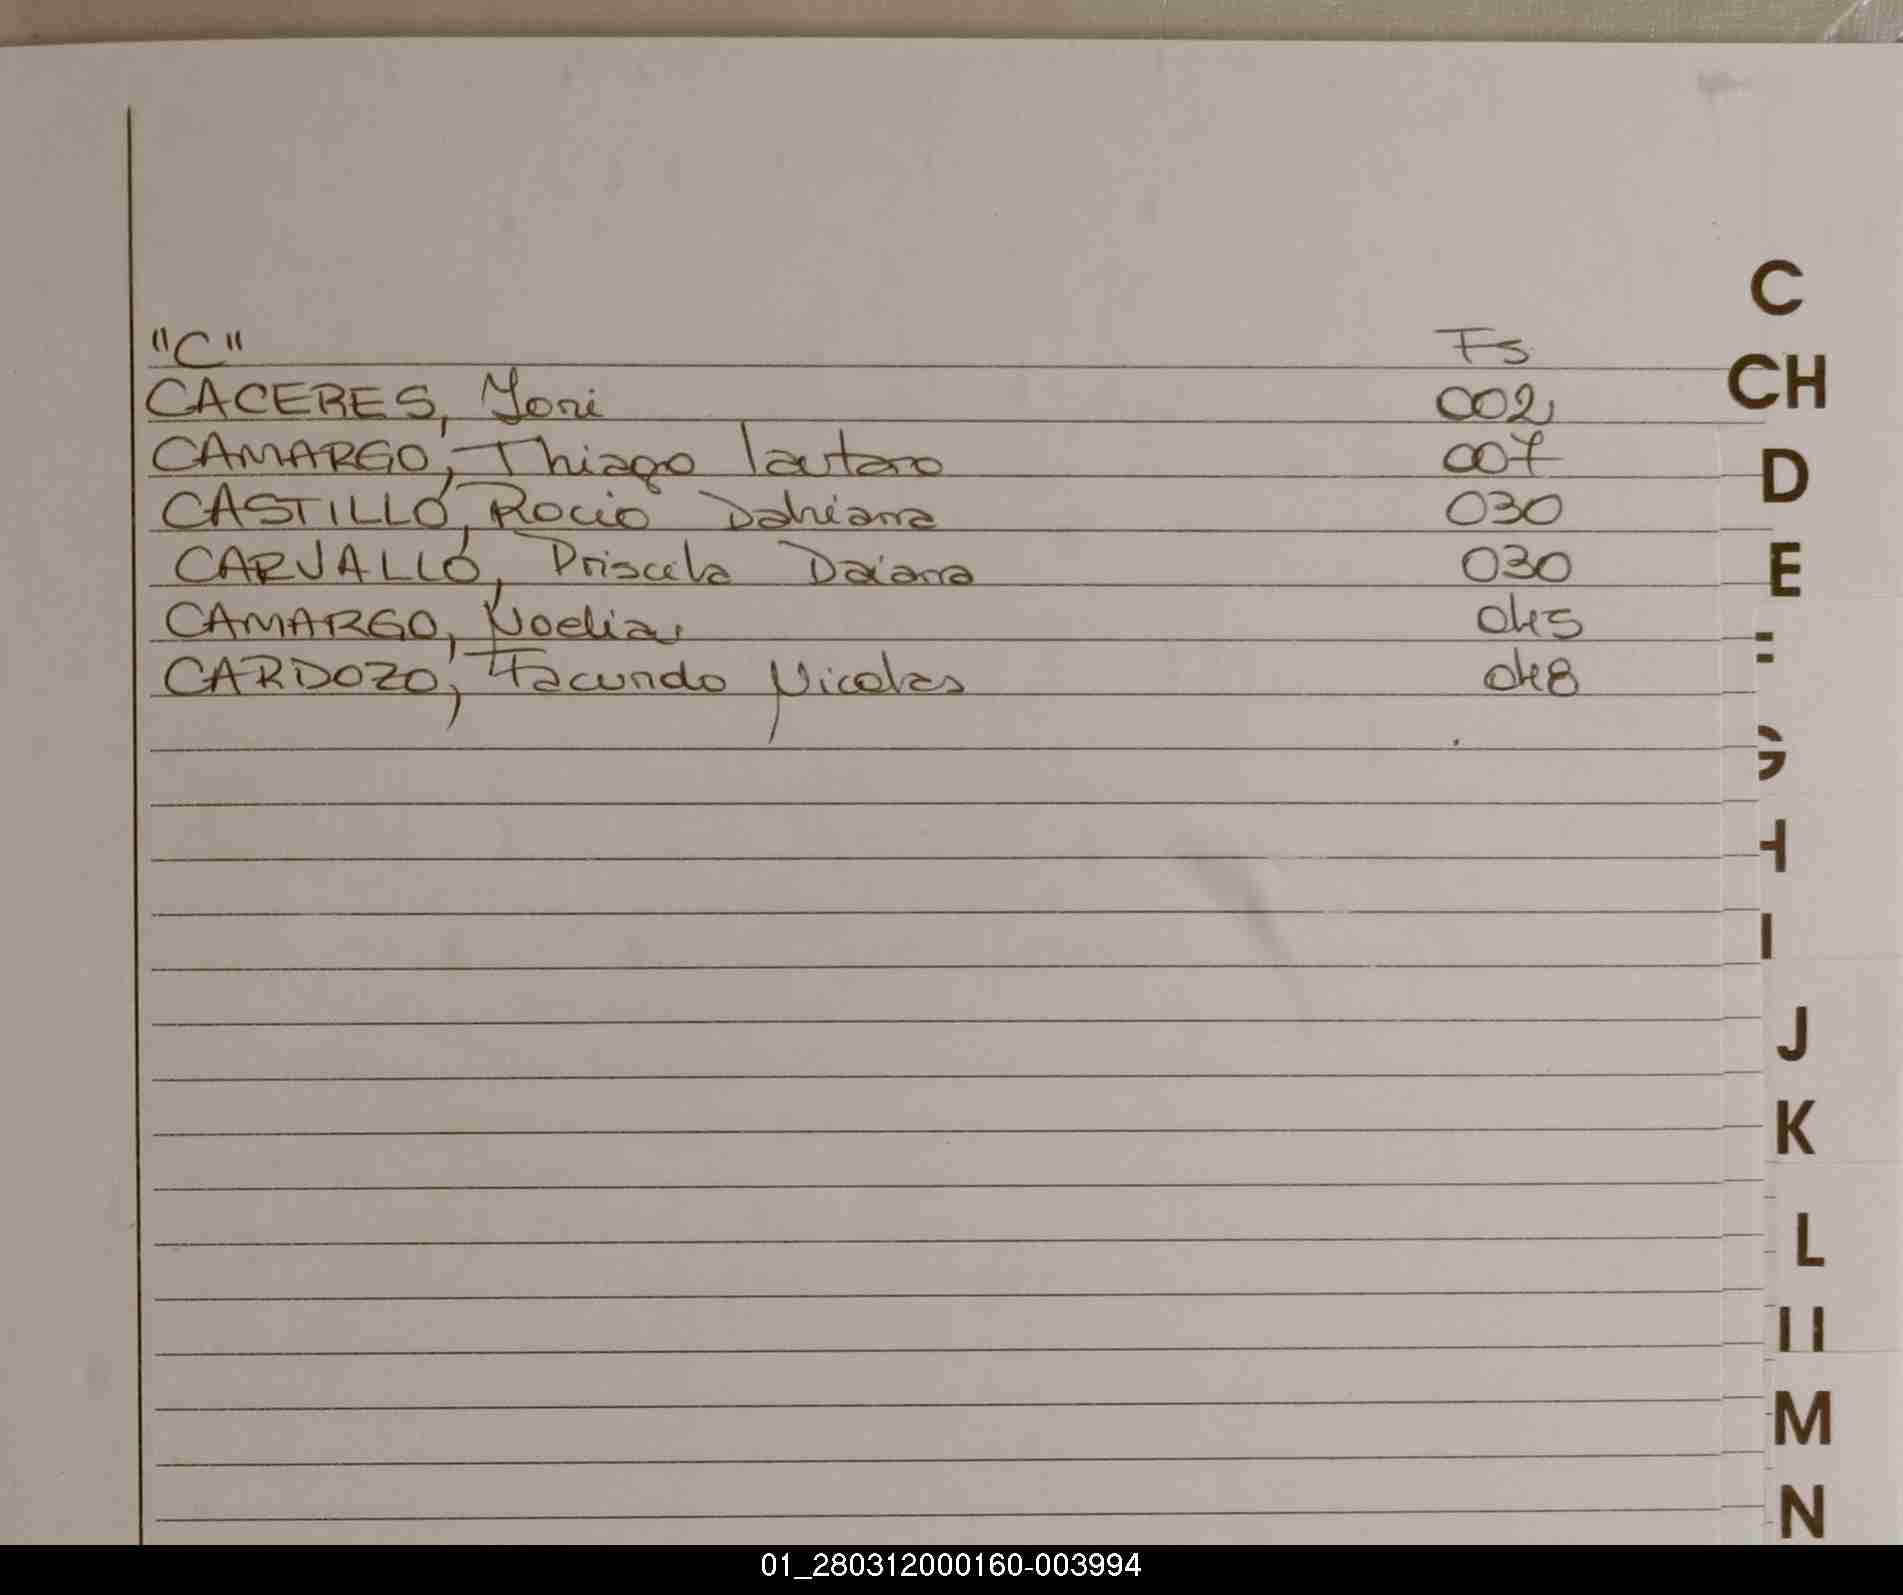 C
"C" Fs
CH
CACERES, Yoni 002
CAMARGO, Thiago lautaro 007
D
CASTILLO, Rocio Dahiana 030
CARVALLO, Priscela Daiana 030
E
CAMARGO, Noelia 045
CARDOZO, Facundo Nicolas 048
I
J
K
L
M
N
01_280312000160-003994